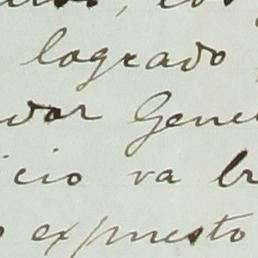 logrado
dor Gene
icio va br
expuesto